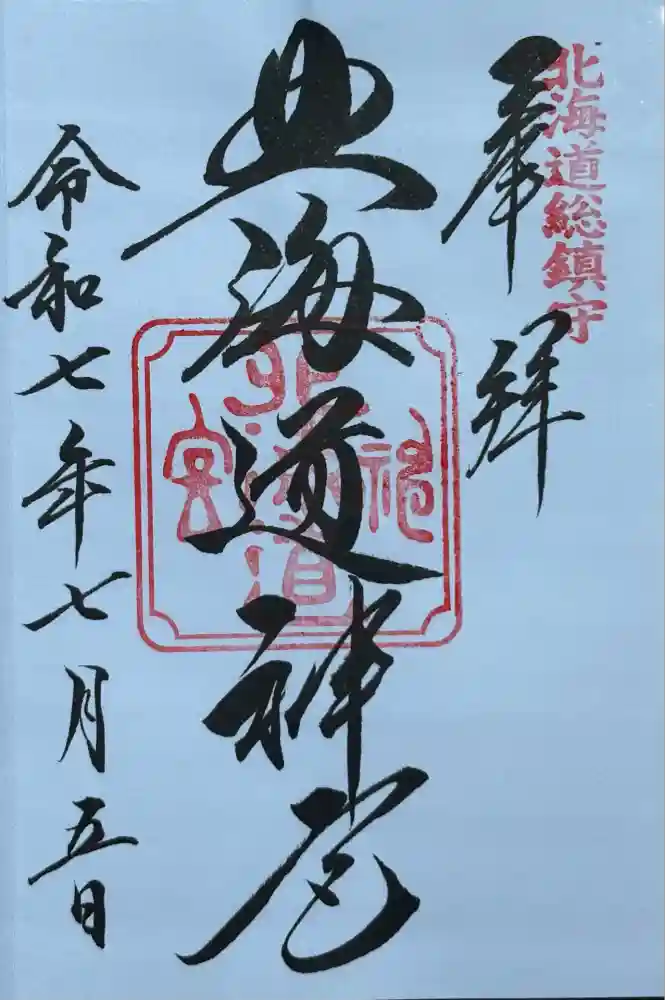 北海道総鎮守
奉拝
北海道神宮
北海道
神
宮
令和七年七月五日